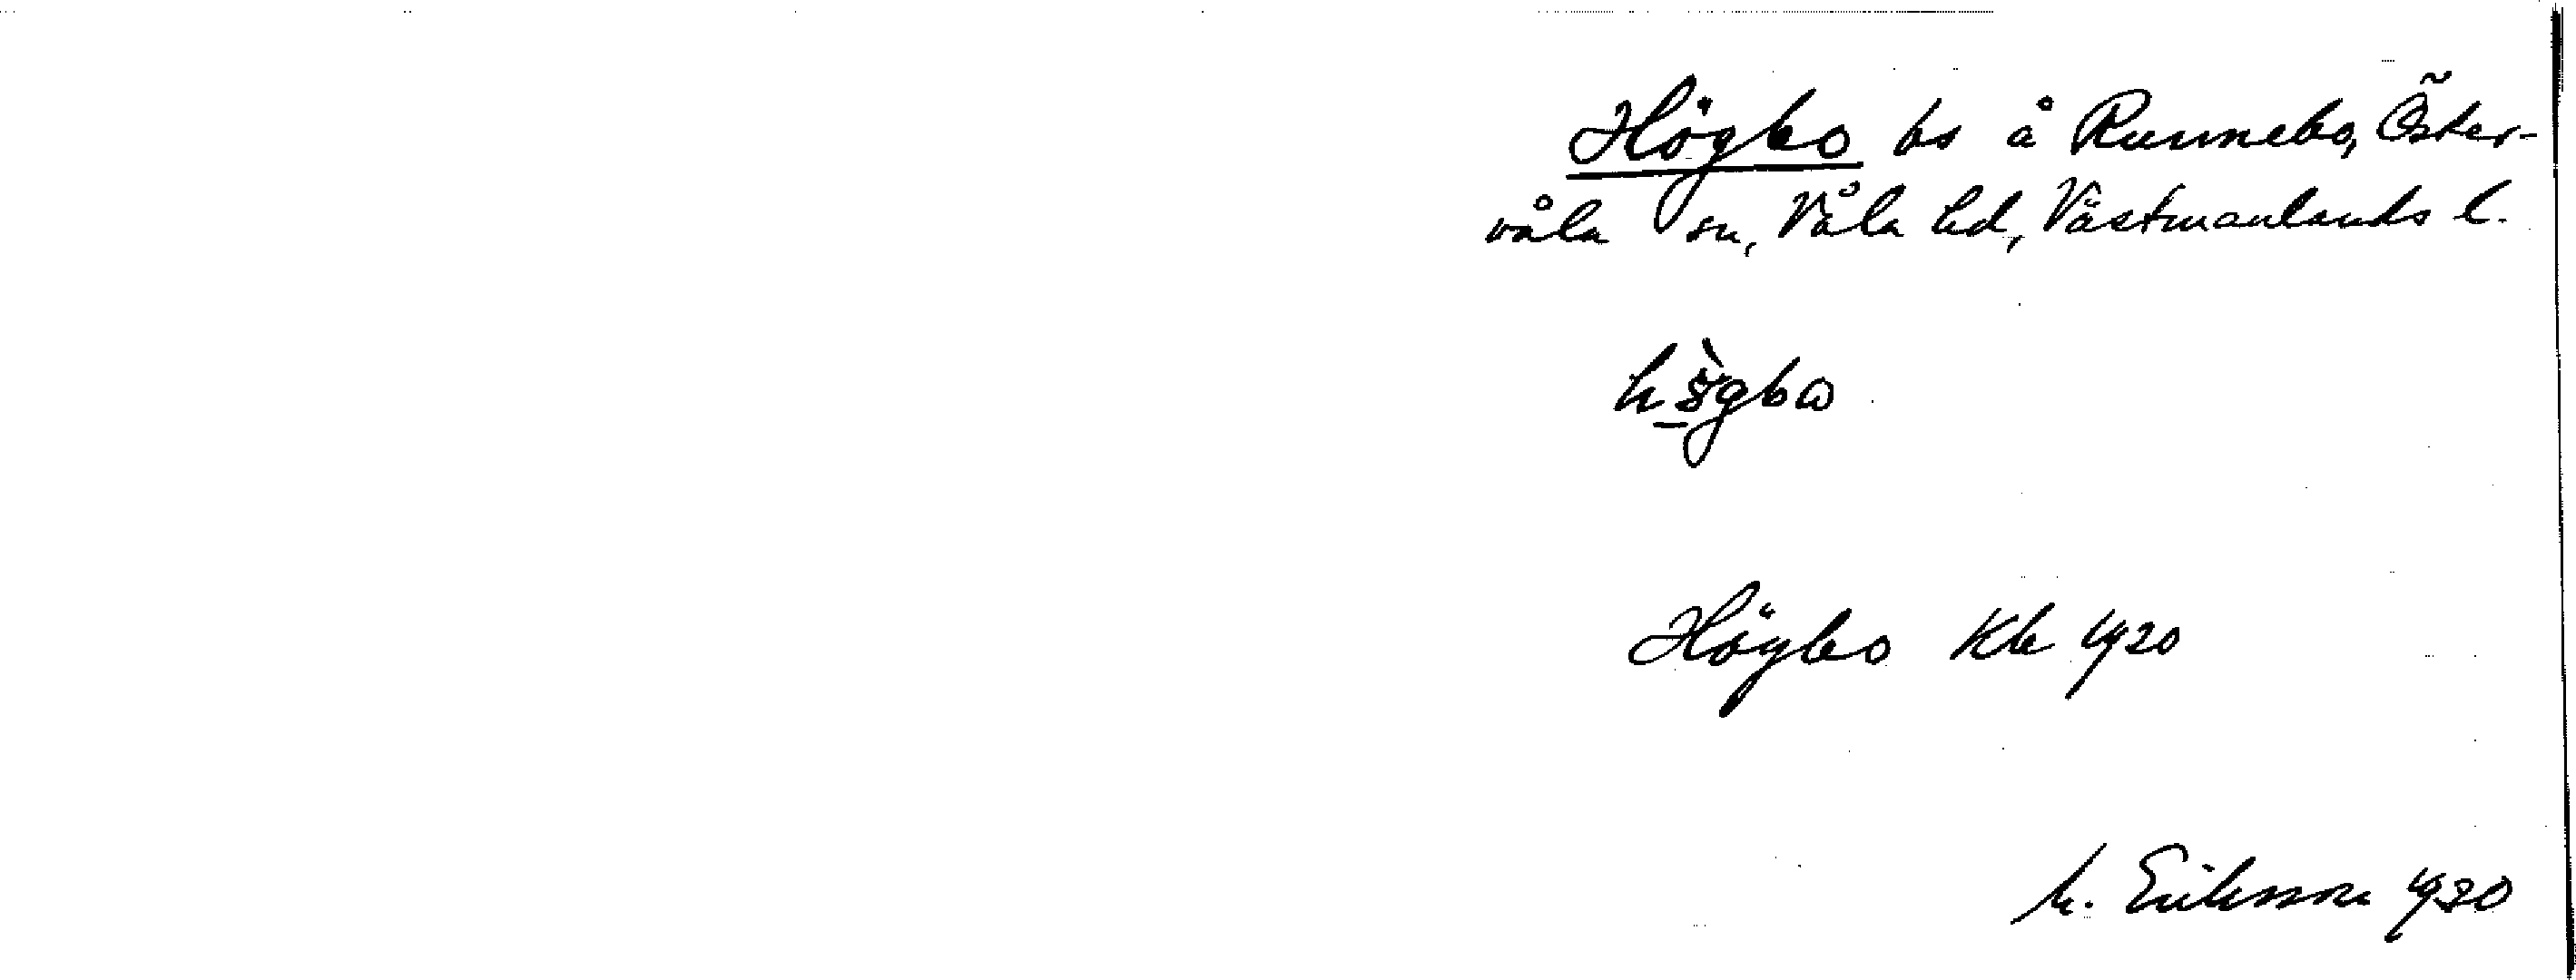 Högbo bs å Runnebo, Öster-
våla sn, Våla hd, Västmanlands l.
Högbo Kb 1920
M. Eriksson 1930